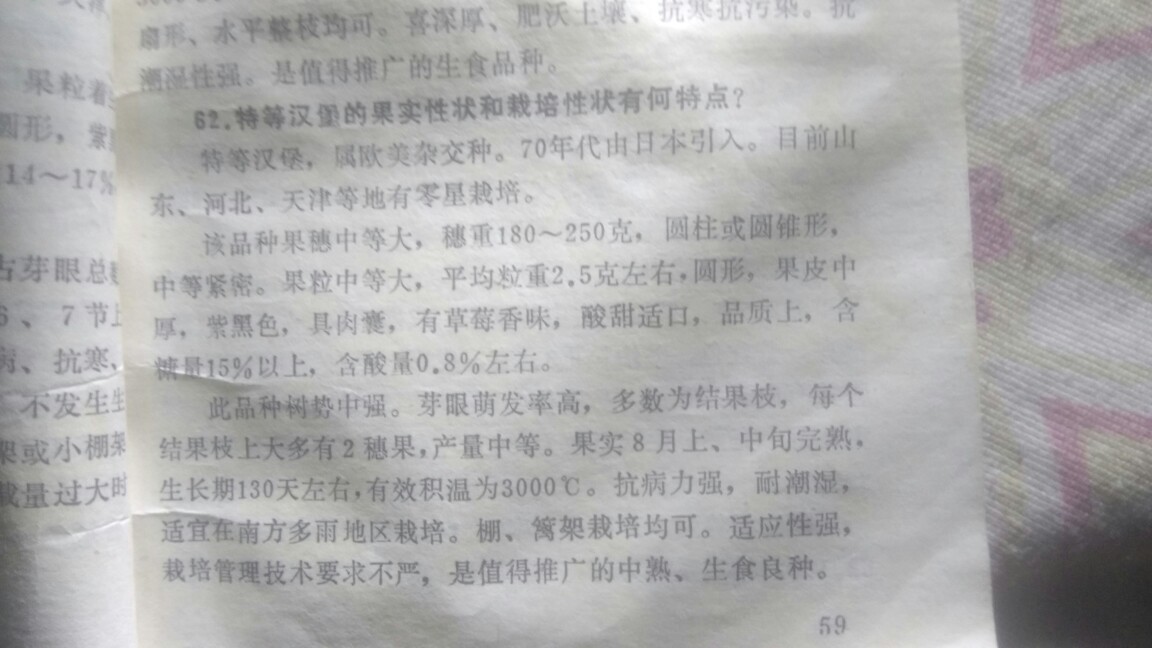 扇形、水平整枝均可。喜深厚、肥沃土壤、抗寒抗污染。抗
潮湿性强。是值得推广的生食品种。
62.特等汉堡的果实性状和栽培性状有何特点？
特等汉堡，属欧美杂交种。70年代由日本引入。目前山
东、河北、天津等地有零星栽培。
该品种果穗中等大，穗重180～250克，圆柱或圆锥形，
中等紧密。果粒中等大，平均粒重2.5克左右，圆形，果皮中
厚，紫黑色，具肉囊，有草莓香味，酸甜适口，品质上，含
糖量15%以上，含酸量0.8%左右。
此品种树势中强。芽眼萌发率高，多数为结果枝，每个
结果枝上大多有2穗果，产量中等。果实8月上、中旬完熟。
生长期130天左右，有效积温为3000℃。抗病力强，耐潮湿，
适宜在南方多雨地区栽培。棚、篱架栽培均可。适应性强，
栽培管理技术要求不严，是值得推广的中熟、生食良种。
59
果粒着
圆形，紫
14～17%
芽眼总
6、7节
、抗寒，
不发生
架或小棚架
载量过大时